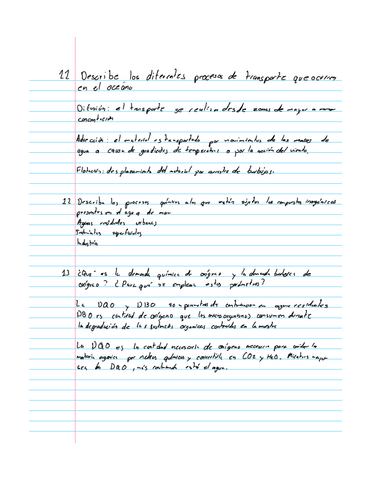 11 Describe los diferentes procesos de transporte que ocurren
en el océano
Difusión: el transporte se realiza desde zonas de mayor a menor
concentración
Advección: el material es transportado por movimientos de las masas de
agua a causa de gradientes de temperatura o por la acción del viento.
Flotación: desplazamiento del material por arrastre de burbujas.
12 Describe los procesos químicos a los que están sujetos los compuestos inorgánicos
presentes en el agua de mar
Aguas residuales urbanas
Industria
13 ¿Qué es la demanda química de oxígeno y la demanda de
oxígeno? ¿Para qué se emplean estos parámetros?
La DQO y DBO son parámetros de contaminación en aguas residuales
DBO es cantidad de oxígeno que los microorganismos consumen durante
la degradación de las sustancias orgánicas contenidas en la muestra
La DQO es la cantidad necesaria de oxígeno para oxidar la
materia orgánica por medios químicos y convertirla en CO2 y H2O. Mientras mayor
sea la DQO, más contaminada está el agua.